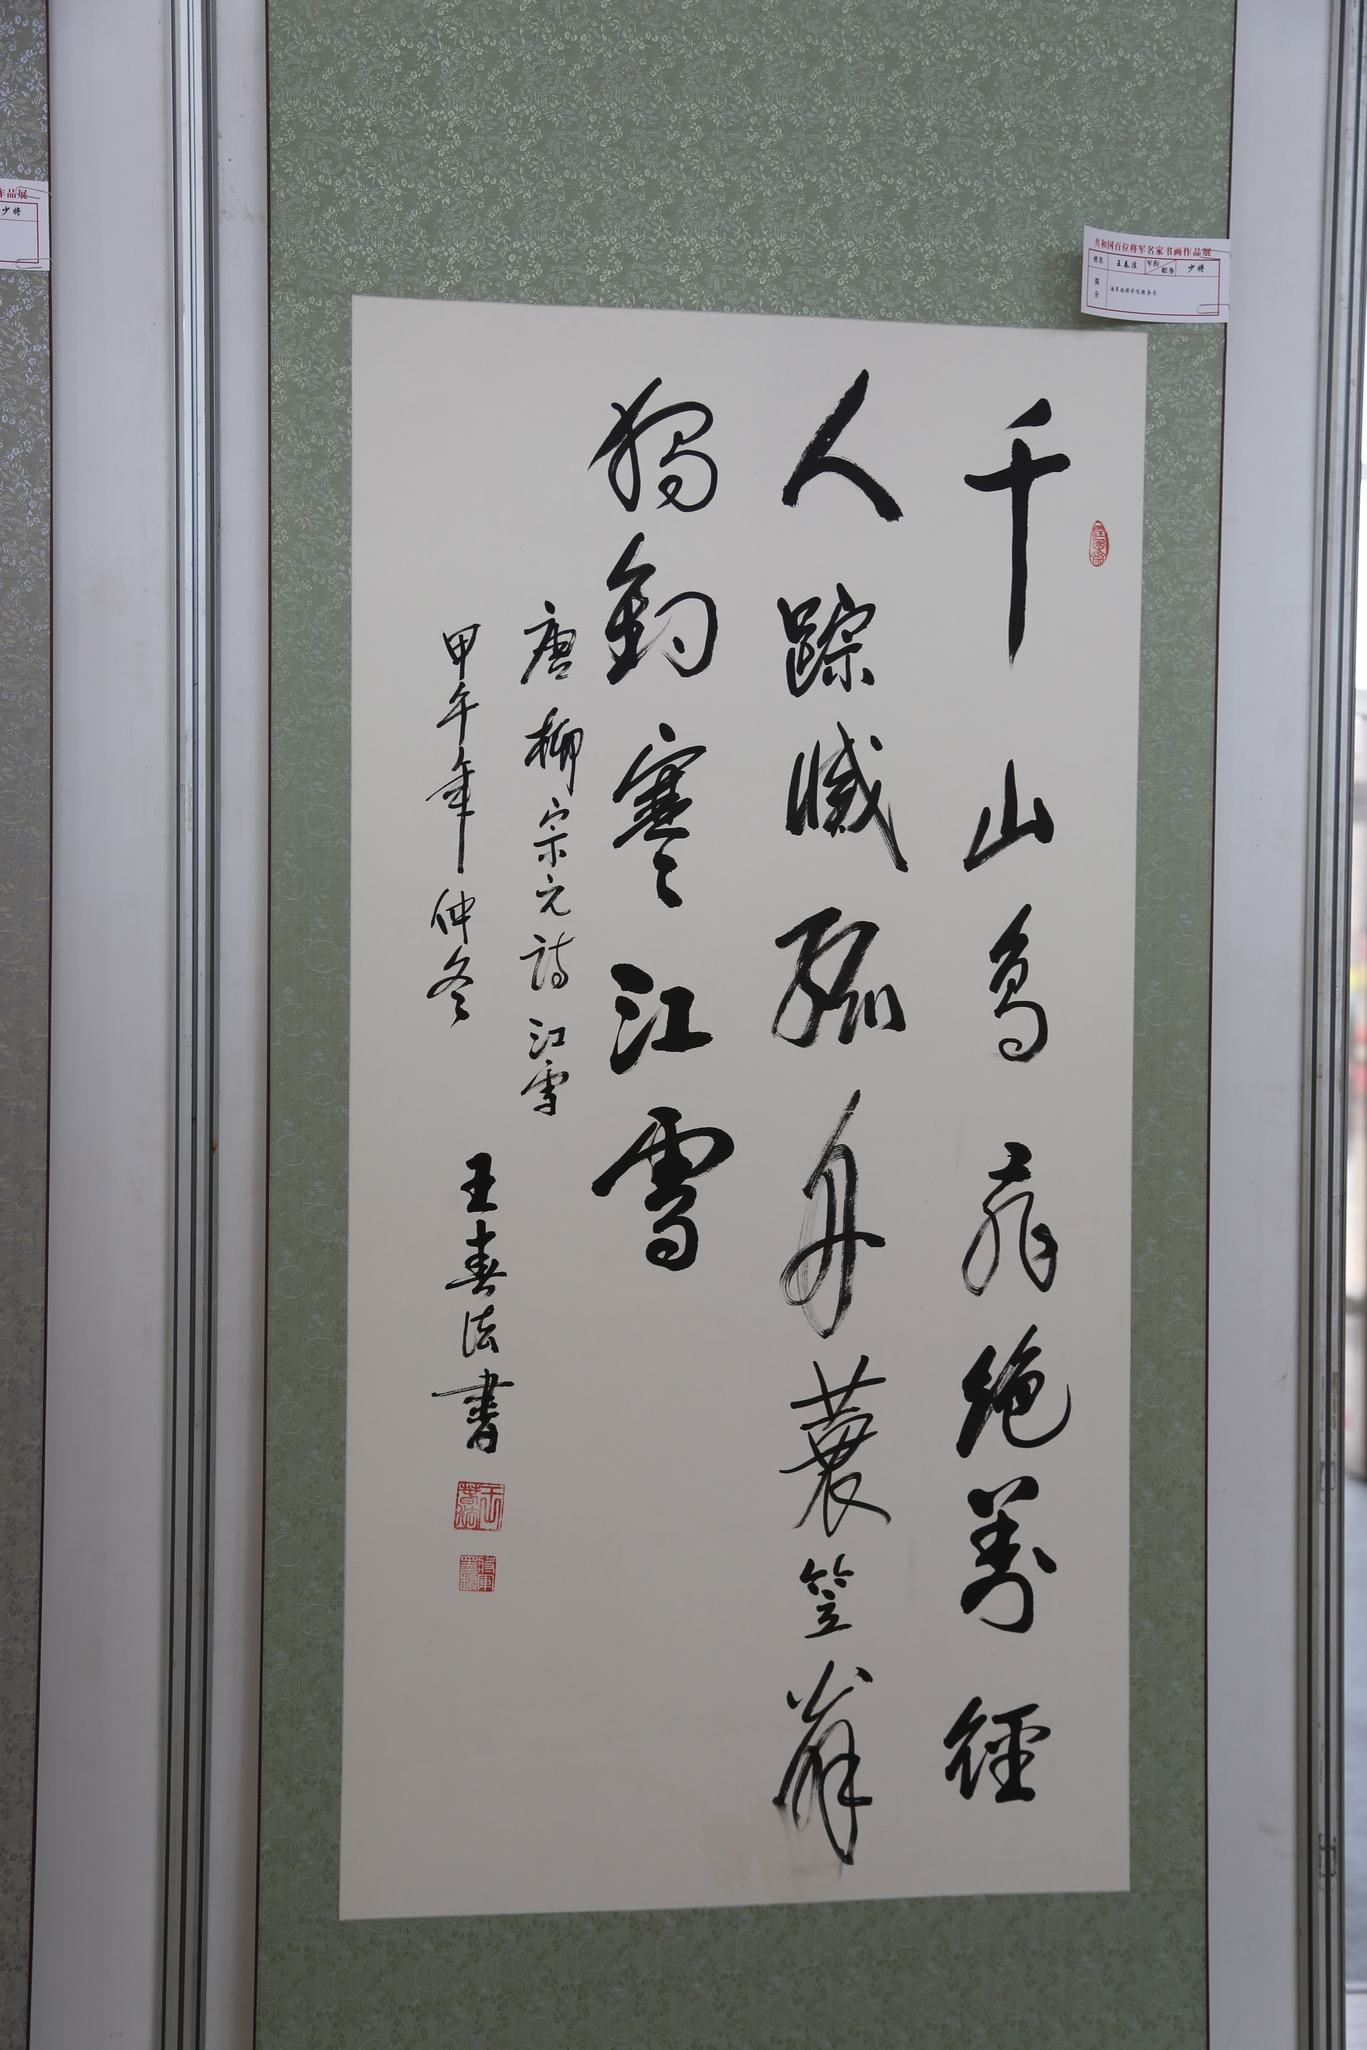 千山鸟飛絶萬径
人踪滅孤舟蓑笠翁
獨釣寒江雪
唐柳宗元詩江雪
甲午年仲冬
王春法書
共和国百位将军名家书画作品展
姓名 王春法 军衔 职务 少将
简介 海军指挥学院教务长
作品展
少将